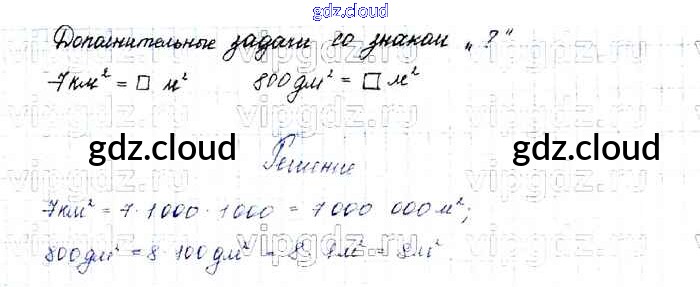 gdz.cloud
Дополнительные задачи со знаком „?“
7км² = □ м² 800дм² = □ м²
gdz.cloud gdz.cloud
Решение
7км² = 7·1000·1000 = 7000 000м²;
800дм² = 8·100дм² = 8·1м² = 8м²